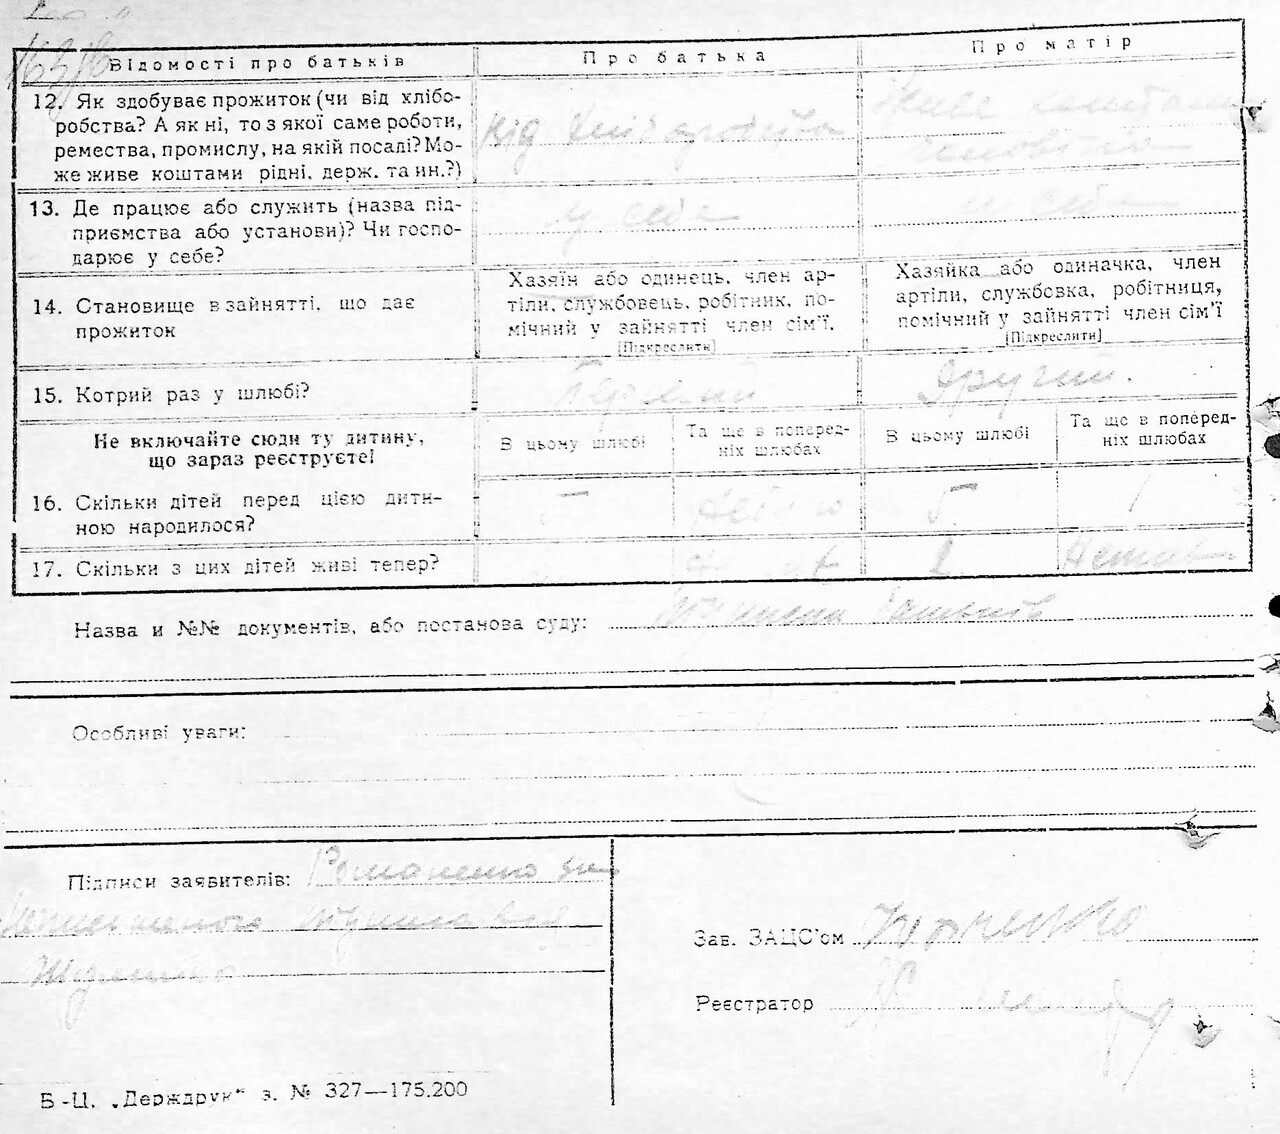 Відомості про батьків
Про батька
Про матір
12. Як здобуває прожиток (чи від хлібо-
робства? А як ні, то з якої саме роботи,
ремества, промислу, на якій посаді? Мо-
же живе коштами рідні, держ. та ин.?)
від хліборобства
Живе коштами
чоловіка
13. Де працює або служить (назва під-
приємства або установи)? Чи госпо-
дарює у себе?
у себе
у себе
14. Становище в зайнятті, що дає
прожиток
Хазяїн або одинець, член ар-
тіли, службовець, робітник, по-
мічний у зайнятті член сім'ї.
[Підкреслити]
Хазяйка або одиначка, член
артіли, службовка, робітниця,
помічний у зайнятті член сім'ї
[Підкреслити]
15. Котрий раз у шлюбі?
Первий
Другий.
Не включайте сюди ту дитину,
що зараз реєструєте!
В цьому шлюбі
Та ще в поперед-
ніх шлюбах
В цьому шлюбі
Та ще в поперед-
ніх шлюбах
16. Скільки дітей перед цією дити-
ною народилося?
5
не було
5
1
17. Скільки з цих дітей живі тепер?
Назва и №№ документів, або постанова суду:
Особливі уваги:
Підписи заявителів: Романенко
Зав. ЗАЦС'ом
Реєстратор
Б-Ц. „Держдрук" з. № 327—175.200